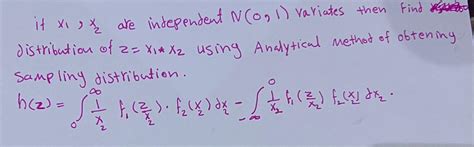 if x₁ , x₂ are independent N(0,1) variates then find
distribution of z = x₁ * x₂ using Analytical method of obtening
sampling distribution.
h(z) = ∫₀^∞ 1/x₂ f₁(z/x₂) . f₂(x₂) dx₂ - ∫_{-∞}^0 1/x₂ f₁(z/x₂) f₂(x₂) dx₂ .